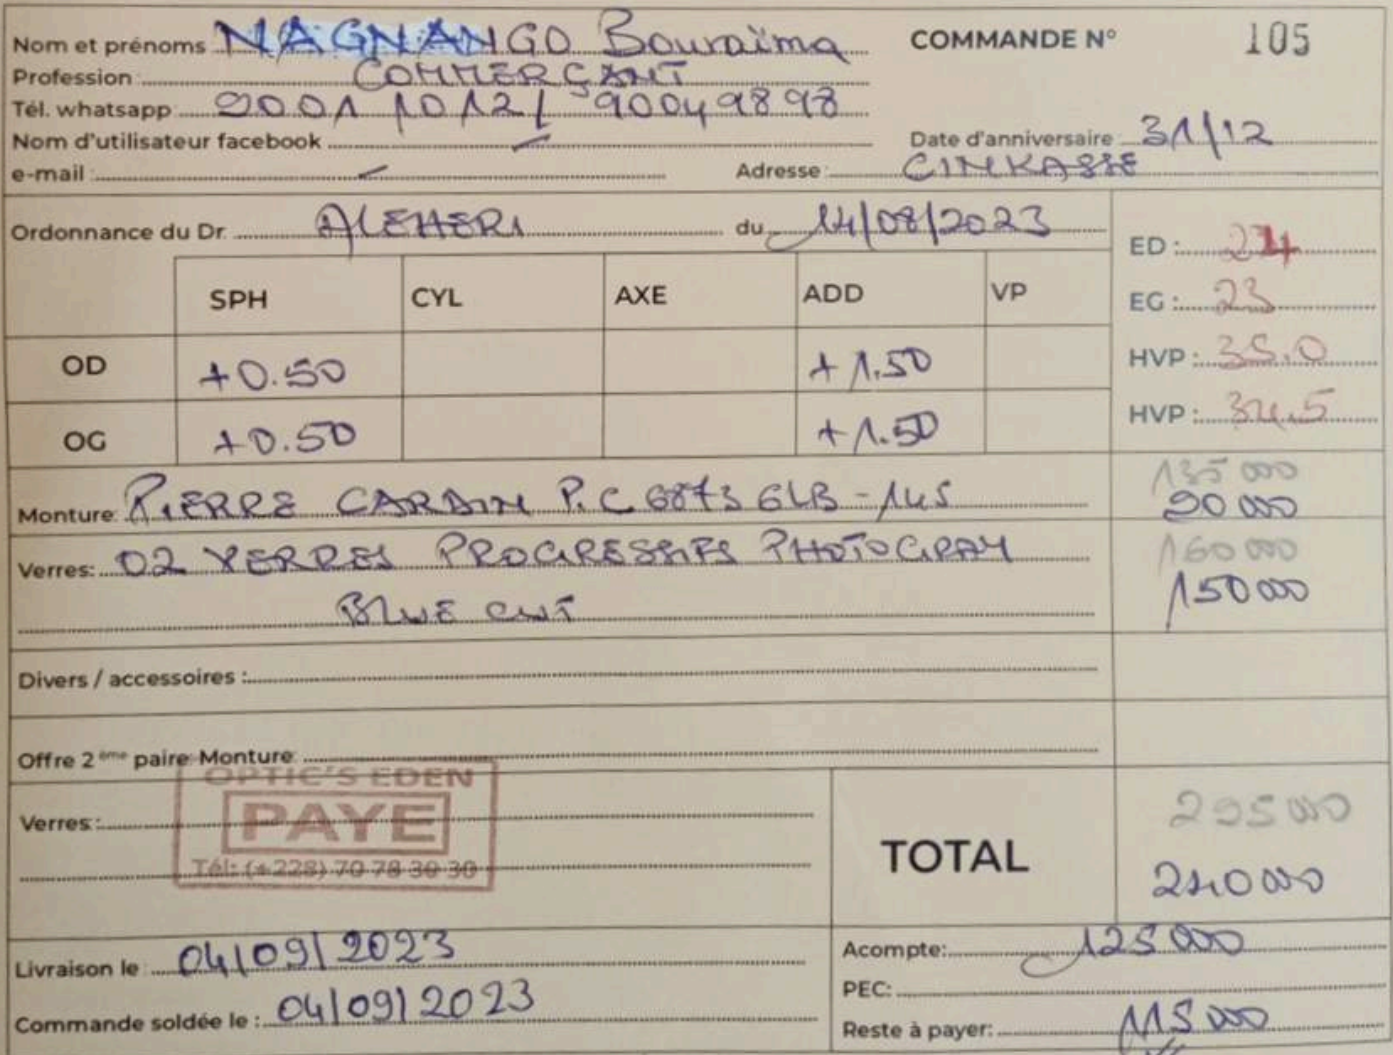 Nom et prénoms NAGNANGO Bouraïma
COMMANDE N° 105
Profession : COMMERÇANT
Tél. whatsapp 9001 10 12 / 90049898
Nom d'utilisateur facebook
Date d'anniversaire : 31/12
e-mail :
Adresse : CINKASSE
Ordonnance du Dr. ALEHERI du 14/08/2023
ED :
SPH CYL AXE ADD VP
EG : 23
OD +0.50 +1.50
HVP : 35.0
OG +0.50 +1.50
HVP : 34.5
135 000
Monture: PIERRE CARDIN P.C 6873 6LB - 145
90 000
160 000
Verres: 02 VERRES PROGRESSIFS PHOTOGRAY
150 000
BLUE CUT
Divers / accessoires :
Offre 2ème paire: Monture:
OPTIC'S EDEN
PAYE
Tél: (+228) 70 78 30 30
Verres :
TOTAL
295 000
240 000
Livraison le : 04/09/2023
Acompte: 125 000
PEC:
Commande soldée le : 04/09/2023
Reste à payer: 115 000